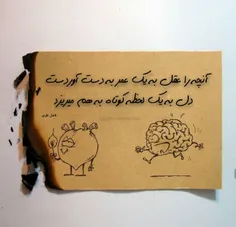 آنچه را عقل به یک عمر به دست آوردست
دل به یک لحظه کوتاه به هم میریزد